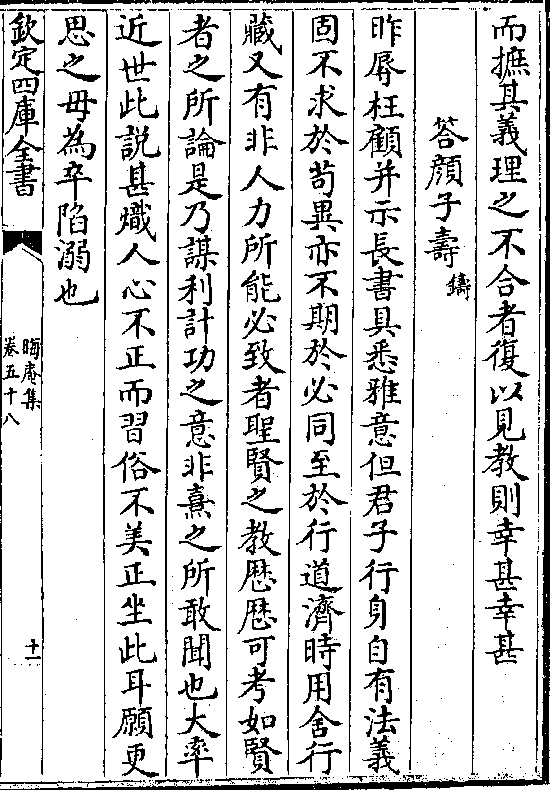 而摭其義理之不合者復以見教則幸甚幸甚
答顔子壽鑄
昨辱枉顧并示長書具悉雅意但君子行身自有法義
固不求於茍異亦不期於必同至於行道濟時用舍行
藏又有非人力所能必致者聖賢之教歴歴可考如賢
者之所論是乃謀利計功之意非熹之所敢聞也大率
近世此說甚熾人心不正而習俗不美正坐此耳願更
思之毋為卒陷溺也
欽定四庫全書
晦庵集
卷五十八
十一